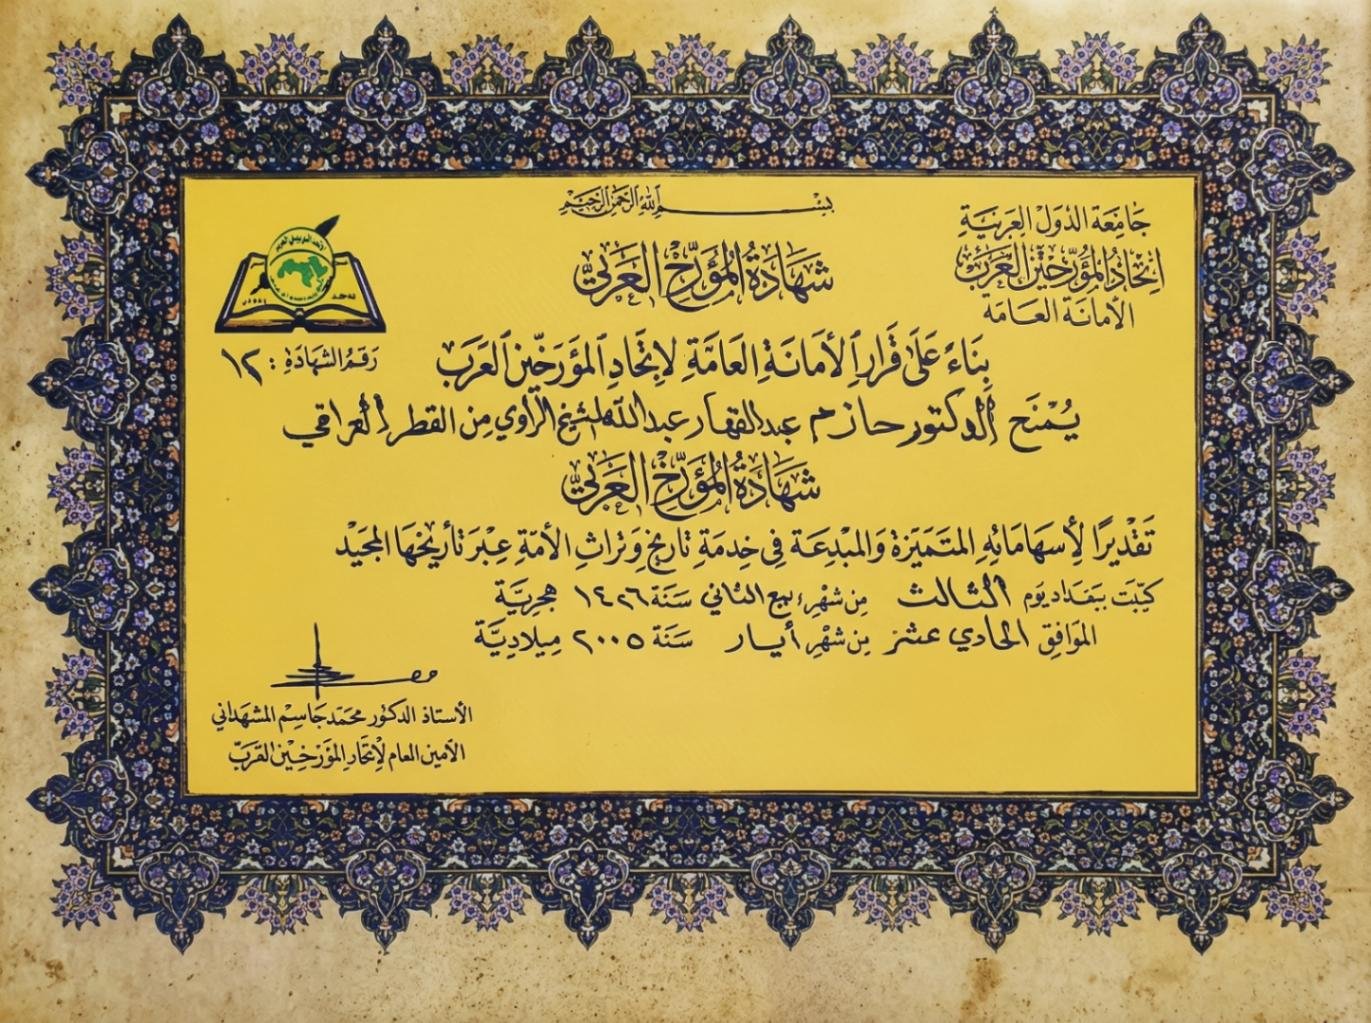 بسم الله الرحمن الرحيم
جَامِعَة الدّوَل العَرَبيَّةِ
اتحَادُ المؤرّخينَ العَرَبْ
الأمانَة العَامَة
شَهَادَةُ المُؤَرِّخ العَرَبيِّ
رَقَمُ الشهَادَةِ : ١٢
بِنَاءً عَلى قَرارِ الأمَانَةِ العَامَّةِ لاتحَادِ المؤرّخين العَرَب
يُمْنَح الدكتور حازم عبدالقهار عبدالله الشيخ الراوي مِن القطر العراقي
شَهَادَةُ المُؤَرِّخ العَرَبيِّ
تَقْديرًا لأسهَامَاتِهِ المتَمَيّزة وَالمبْدِعَة في خِدمَةِ تاريخ وَتراثِ الأمّةِ عِبْرَ تأريخهَا المجيْد
كتِبَت ببَغدَاد يَوم الثالث مِن شهْر ربيع الثاني سَنَة ١٤٢٦ هجريَّة
الموَافِق الحادي عشر مِن شهْرِ أيار سَنَة ٢٠٠٥ مِيلادِيَّة
الأستاذ الدكتور محمّد جَاسِم المشهَداني
الأمين العام لاتحَادِ المؤرّخين العَرَبْ